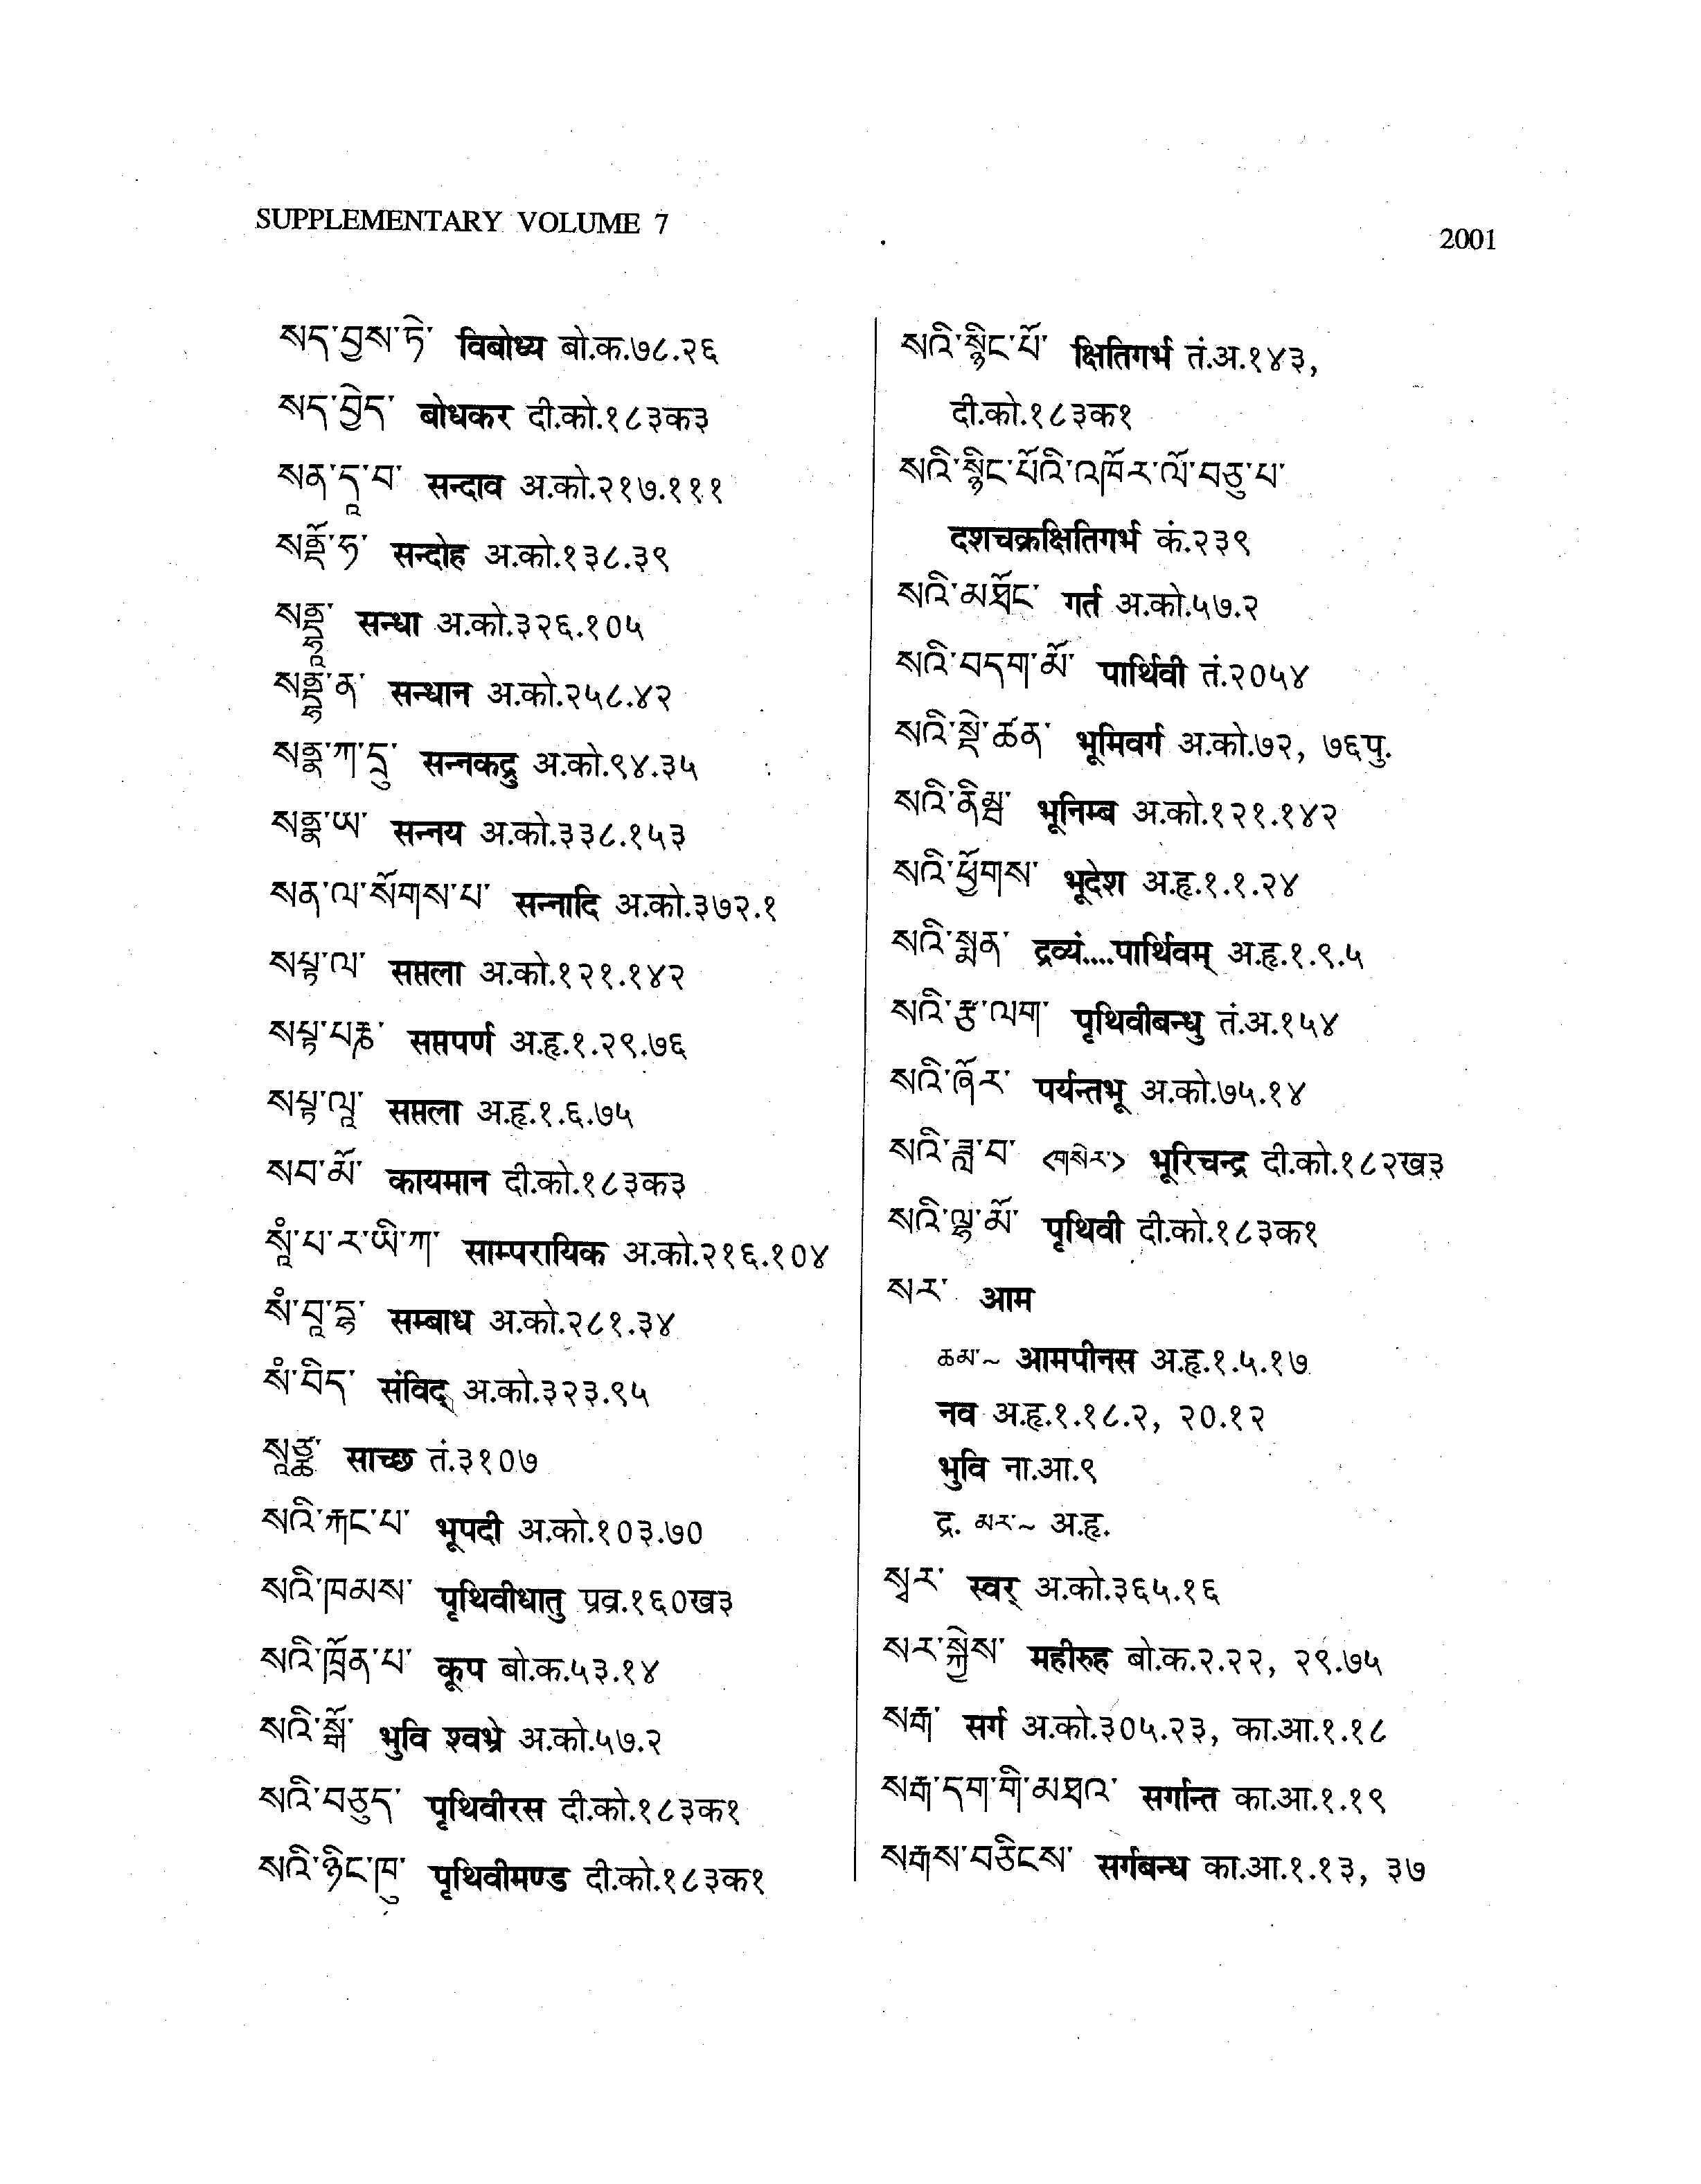 SUPPLEMENTARY VOLUME 7
2001
སད་བྱས་ཏེ་ विबोध्य बो.क.७८.२६
སད་བྱེད་ बोधकर दी.को.१८३क३
སན་དཱ་བ་ सन्दाव अ.को.२१७.१११
སནྡོ་ཧ་ सन्दोह अ.को.१३८.३९
སནྡྷཱ་ सन्धा अ.को.३२६.१०५
སནྡྷ་ན་ सन्धान अ.को.२५८.४२
སནྣ་ཀ་དྲུ་ सन्नकद्रु अ.को.९४.३५
སནྣ་ཡ་ सन्नय अ.को.३३८.१५३
སན་ལ་སོགས་པ་ सन्नादि अ.को.३७२.१
སཔྟ་ལ་ सप्तला अ.को.१२१.१४२
སཔྟ་པརྞ་ सप्तपर्ण अ.हृ.१.२९.७६
སཔྟ་ལཱ་ सप्तला अ.हृ.१.६.७५
སབ་མོ་ कायमान दी.को.१८३क३
སཱཾ་པ་ར་ཡི་ཀ་ साम्परायिक अ.को.२१६.१०४
སཾ་བཱ་དྷ་ सम्बाध अ.को.२८१.३४
སཾ་བིད་ संविद् अ.को.३२३.९५
སཱཙྪ་ साच्छ तं.३१०७
སའི་རྐང་པ་ भूपदी अ.को.१०३.७०
སའི་ཁམས་ पृथिवीधातु प्रव्र.१६०ख३
སའི་ཁྲོན་པ་ कूप बो.क.५३.१४
སའི་སྒོ་ भुवि श्वभ्रे अ.को.५७.२
སའི་བཅུད་ पृथिवीरस दी.को.१८३क१
སའི་ཉིང་ཁུ་ पृथिवीमण्ड दी.को.१८३क१
སའི་སྙིང་པོ་ क्षितिगर्भ तं.अ.१४३,
दी.को.१८३क१
སའི་སྙིང་པོའི་འཁོར་ལོ་བཅུ་པ་
दशचक्रक्षितिगर्भ कं.२३९
སའི་མཐོང་ गर्त अ.को.५७.२
སའི་བདག་མོ་ पार्थिवी तं.२०५४
སའི་སྡེ་ཚན་ भूमिवर्ग अ.को.७२, ७६पु.
སའི་ནིམྦ་ भूनिम्ब अ.को.१२१.१४२
སའི་ཕྱོགས་ भूदेश अ.हृ.१.१.२४
སའི་སྨན་ द्रव्यं....पार्थिवम् अ.हृ.१.९.५
སའི་རྩ་ལག་ पृथिवीबन्धु तं.अ.१५४
སའི་ཞོར་ पर्यन्तभू अ.को.७५.१४
སའི་ཟླ་བ་ <གསེར་> भूरिचन्द्र दी.को.१८२ख३
སའི་ལྷ་མོ་ पृथिवी दी.को.१८३क१
སར་ आम
ཆམ་~ आमपीनस अ.हृ.१.५.१७
नव अ.हृ.१.१८.२, २०.१२
भुवि ना.आ.९
द्र. མར་~ अ.हृ.
སྭར་ स्वर् अ.को.३६५.१६
སར་སྐྱེས་ महीरुह बो.क.२.२२, २९.७५
སརྒ་ सर्ग अ.को.३०५.२३, का.आ.१.१८
སརྒ་དག་གི་མཐའ་ सर्गान्त का.आ.१.१९
སརྒས་བཅིངས་ सर्गबन्ध का.आ.१.१३, ३७